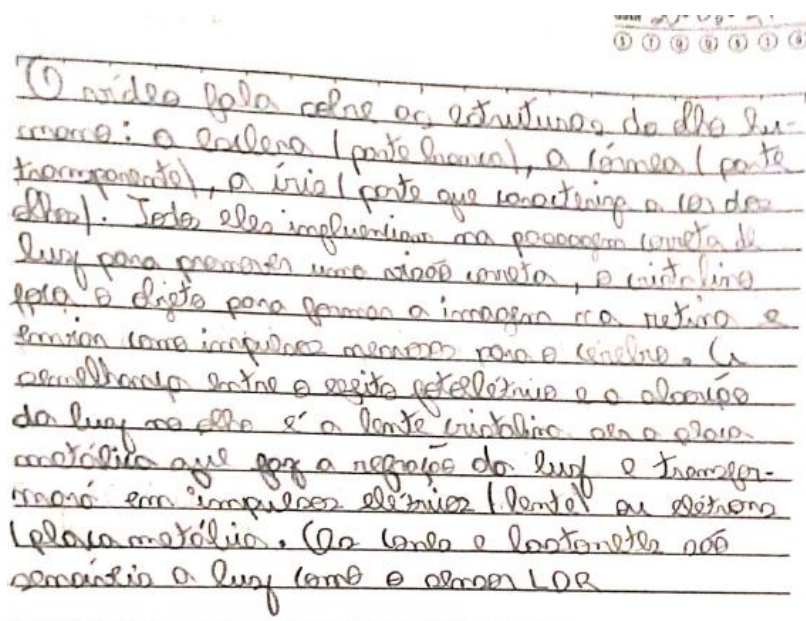 O vídeo fala sobre as estruturas do olho hu-
mano: a esclera (parte branca), a córnea (parte
transparente), a íris (parte que caracteriza a cor dos
olhos). Todos eles influenciam na passagem correta de
luz para promover uma visão correta, o cristalino
foca o objeto para formar a imagem na retina e
enviar como impulsos nervosos para o cérebro. A
semelhança entre o efeito fotoelétrico e a absorção
da luz no olho é a lente cristalino ser a placa
metálica que faz a refração da luz e transfor-
mará em impulsos elétricos (lente) ou elétrons
(placa metálica. Os cones e bastonetes são
a luz como o sensor LDR